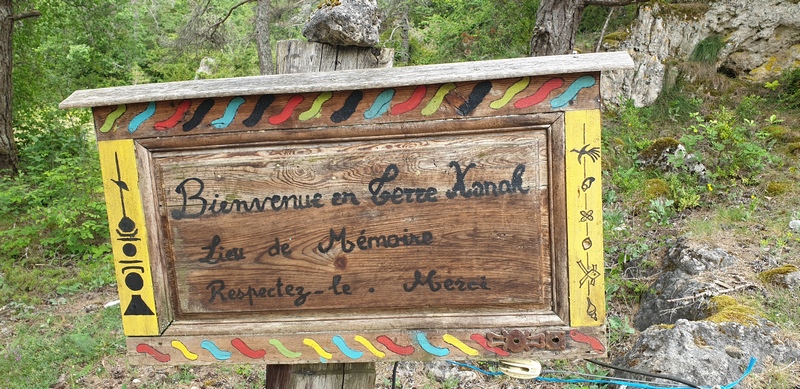 Bienvenue en Terre Kanak
Lieu de Mémoire
Respectez-le. Merci